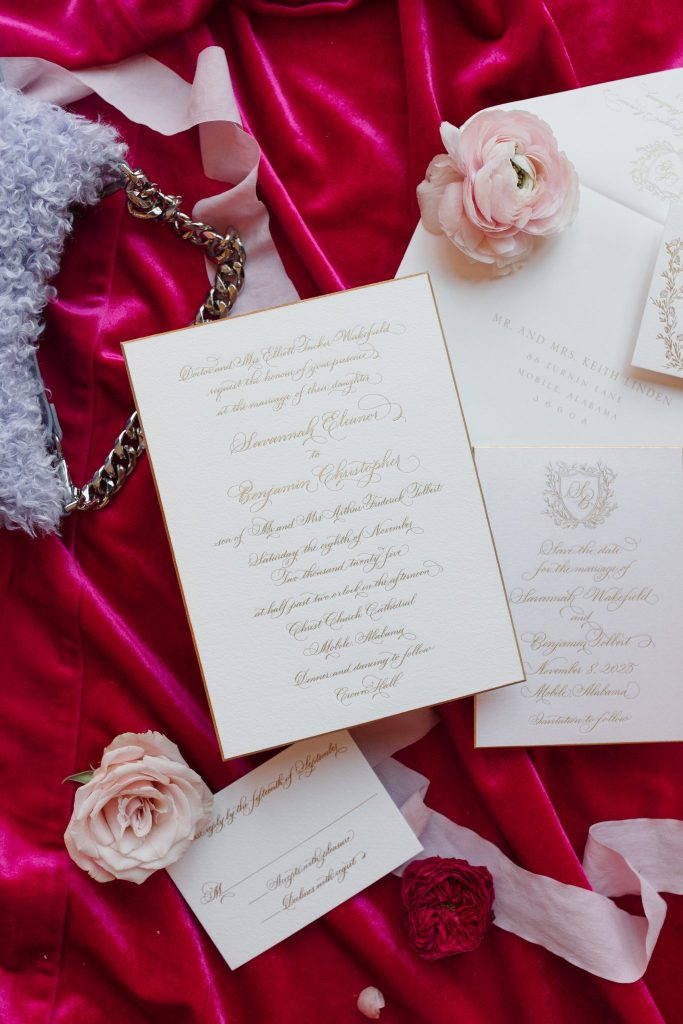 Doctor and Mrs Elliott Tucker Wakefield
request the honour of your presence
at the marriage of their daughter
Savannah Eleanor
to
Benjamin Christopher
son of Mr and Mrs Arthur Frederick Tolbert
Saturday the eighth of November
Two thousand twenty five
at half past two o'clock in the afternoon
Christ Church Cathedral
Mobile, Alabama
Dinner and dancing to follow
Crown Hall
MR. AND MRS. KEITH LINDEN
66 TURNIN LANE
MOBILE, ALABAMA
36608
SB
Save the date
for the marriage of
Savannah Wakefield
and
Benjamin Tolbert
November 8, 2025
Mobile, Alabama
Invitation to follow
reply by the fifteenth of September
M
Accepts with pleasure
Declines with regret